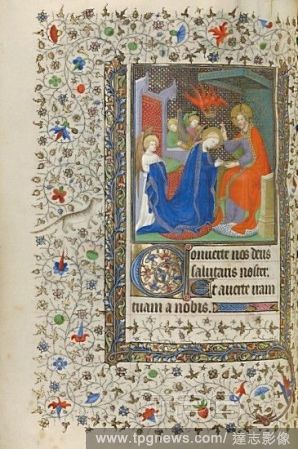 Conuerte nos deus
salutaris noster.
Et auerte iram
tuam a nobis.
www.tpgnews.com/ 達志影像